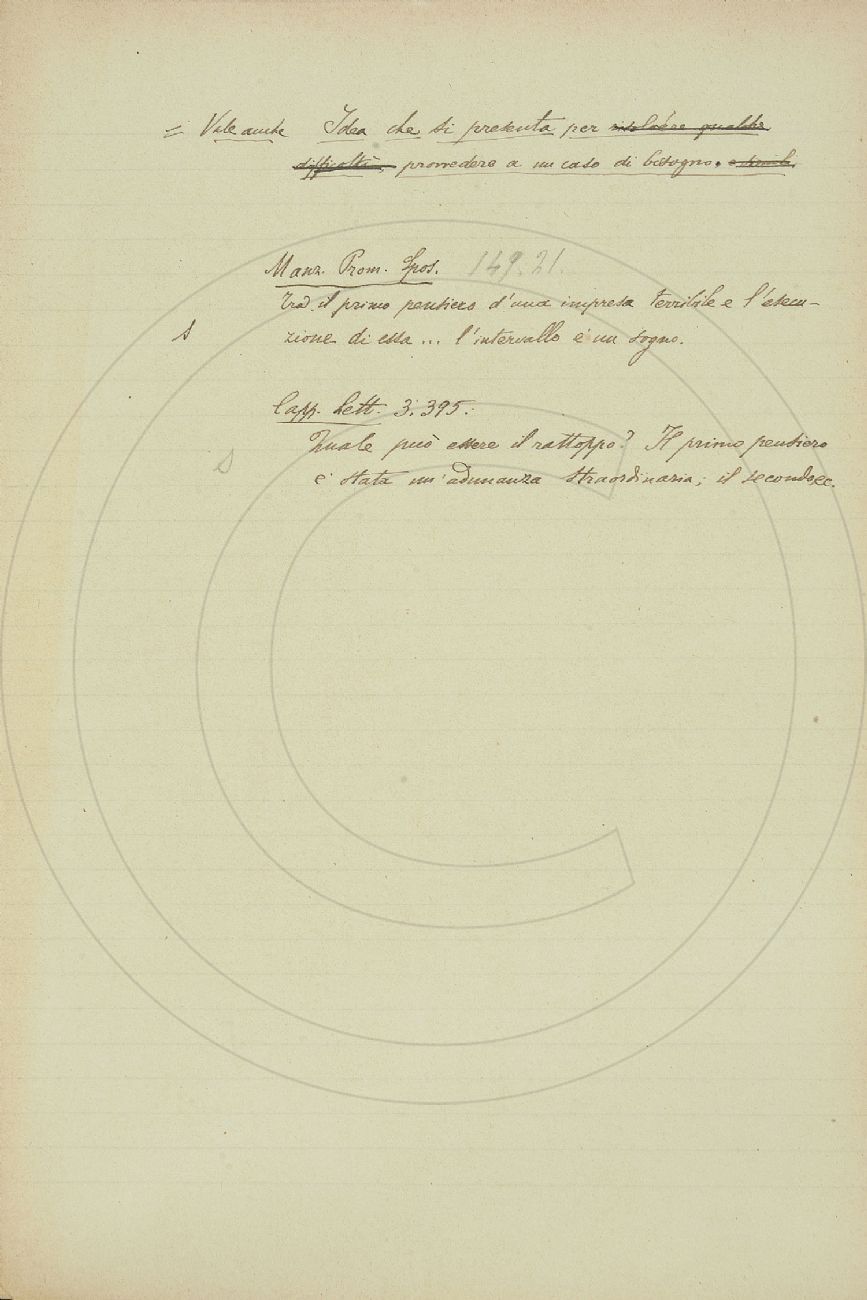 = Vale anche Idea che si presenta per risolvere qualche
difficoltà, provvedere a un caso di bisogno. e simili.
Manz. Prom. Spos. 149.21.
Tra il primo pensiero d'una impresa terribile e l'esecu-
s zione di essa ... l'intervallo è un sogno.
Capp. Lett. 3. 395.
Quale può essere il rattoppo? Il primo pensiero
s è stata un'adunanza straordinaria; il secondo ec.